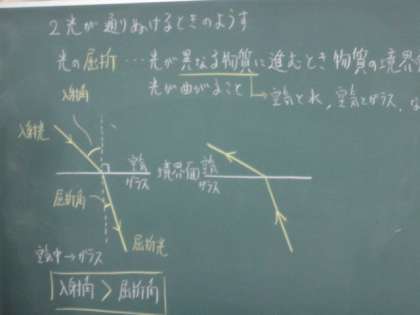 2 光が通りぬけるときのようす
光の屈折…光が異なる物質に進むとき物質の境界
光が曲がること
→空気と水,空気とガラス,
入射角
入射光
空気
ガラス
境界面
空気
ガラス
屈折角
屈折光
空気中→ガラス
入射角 > 屈折角